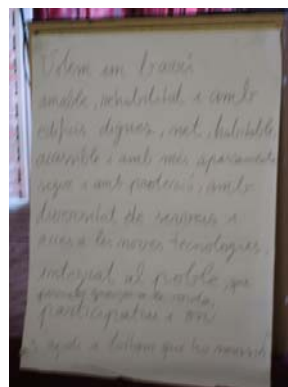 Volem un barri
amable, rehabilitat i amb
edificis dignes, net, habitable,
accessible i amb més aparcaments
segur i amb protecció, amb
diversitat de serveis i
accés a les noves tecnologies,
integrat al poble, que
participatiu i on